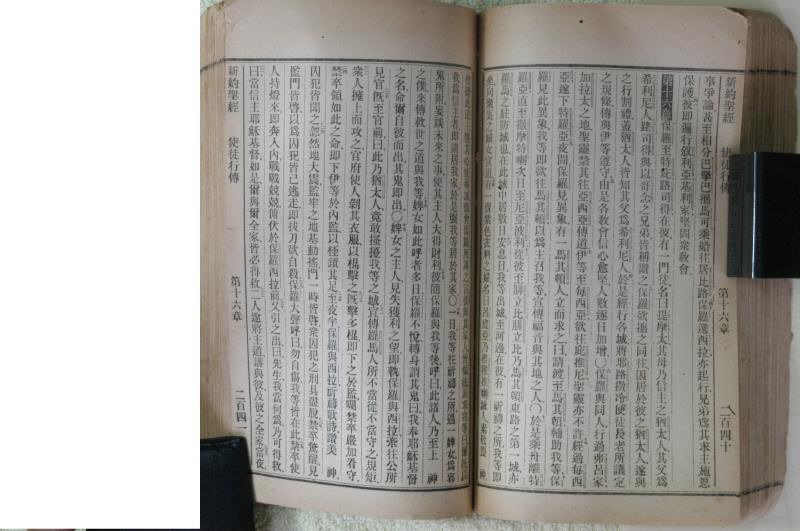 新約聖經 使徒行傳 第十六章 二百四十
事爭論甚至相分巴拿巴攜馬可乘船往居比路保羅選西拉亦起行兄弟爲其求主施恩
保護彼即遍行敘利亞基利家堅固衆敎會
保羅至特庇路司得在彼有一門徒名曰提摩太其母乃信主之猶太人其父爲
希利尼人路司得與以哥念之兄弟皆稱讚之保羅欲攜之同往因居於彼之猶太人遂與
之行割禮蓋猶太人皆知其父爲希利尼人於是經行各城將耶路撒冷使徒長老所議定
之規條傳與伊等遵守由是各敎會信心愈堅人數逐日加增〇保羅與同人行過弗呂家
加拉太之地聖靈禁其往亞西亞傳道伊等至每西亞欲往庇推尼聖靈亦不許經過每西
亞遂下特羅亞夜間保羅見異象有一馬其頓人立而求之曰請渡至馬其頓輔助我等保
羅見此異象我等即欲往馬其頓以爲主召我等宣傳福音與其地之人〇於是乘舟離特
羅亞直至撒摩特喇次日至尼亞波利從彼至腓立比腓立比乃馬其頓東路之第一城亦
羅馬之駐防城也在此城中居數日安息日我等出城至河邊在彼有一祈禱之所我等即
我爲信主者即請居我家於是强我等居於其家〇一日我等往祈禱之所遇一婢女爲邪
鬼所附妄談未來之事使其主人大得財利彼隨保羅與我等後呼曰此諸人乃至上 神
之僕來傳救世之道與我等婢女如此呼者多日保羅不悅轉身謂其鬼曰我奉耶穌基督
之名命爾自彼而出其鬼即出〇婢女之主人見失獲利之望即執保羅與西拉牽往公所
見官旣至官前曰此乃猶太人竟敢擾擾我等之城宣傳羅馬人所不當從不當守之規短
衆人擁上而攻之官府使人剝其衣服以棍擊之旣擊多棍即下之於監囑禁卒嚴加看守
禁卒領如此之命即下伊等於內監以桎鎖其足至夜半保羅與西拉祈禱歌詩讚美 神
囚犯皆聞之忽然地大震監牢之地基動搖門一時皆啓衆囚犯之刑具盡脫禁卒驚醒見
監門皆啓以爲囚犯皆已逃走即拔刀欲自殺保羅大聲呼曰勿自傷我等皆在此禁卒使
人持燈來即奔入內戰戰兢兢俯伏於保羅西拉前又引之出曰先生我當何爲乃可得救
曰當信主耶穌基督如是爾與爾全家皆必得救二人遂將主道講與彼及彼之全家當夜
新約聖經 使徒行傳 第十六章 二百四一